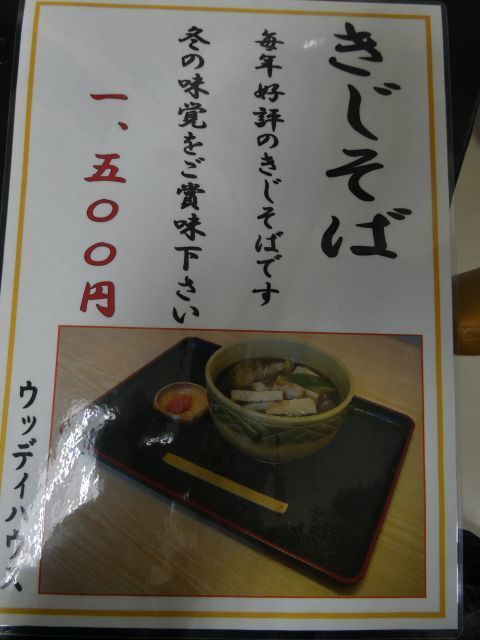 きじそば
毎年好評のきじそばです
冬の味覚をご賞味下さい
一、五〇〇円
ウッディハウス